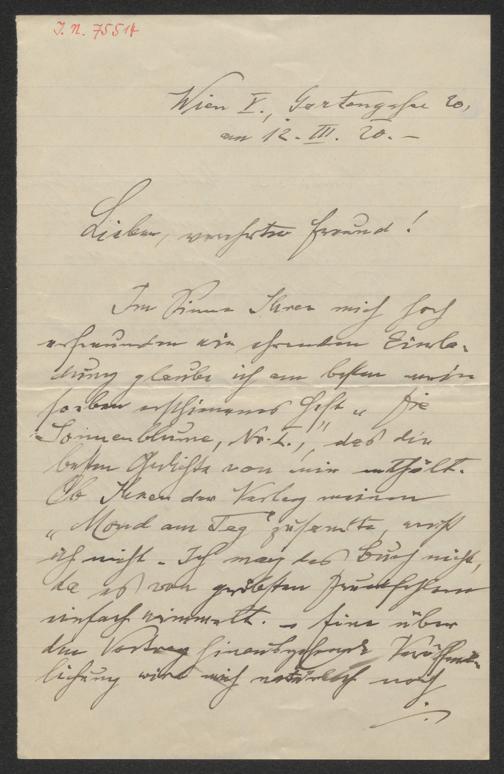 J. N. 75514
Wien V., Gartengasse 20,
am 12. III. 20. –
Lieber, verehrter Freund!
Im Sinne Ihrer mich hoch
erfreuenden wie ehrenden Einla-
dung glaube ich am besten mein
soeben erschienenes Heft „Die
Sonnenblume, No. I.", das die
besten Gedichte von mir enthält.
Ob Ihnen der Verlag meinen
„Mond am Tag" zusandte, weiß
ich nicht. Ich mag das Buch nicht,
da es von gröbsten Druckfehlern
einfach wimmelt. – Eine über
den Vortrag hinausgehende Veröffent-
lichung wird mich natürlich noch